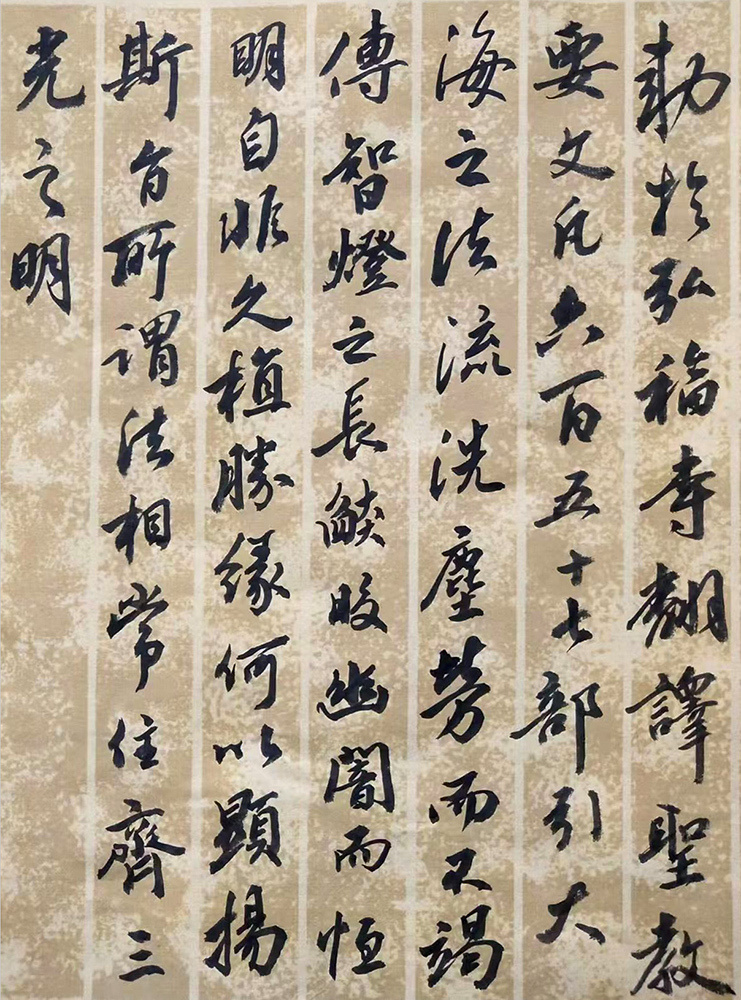 勅於弘福寺翻譯聖教
要文凡六百五十七部引大
海之法流洗塵勞而不竭
傳智燈之長焰皎幽闇而恒
明自非久植勝緣何以顯揚
斯旨所謂法相常住齊三
光之明